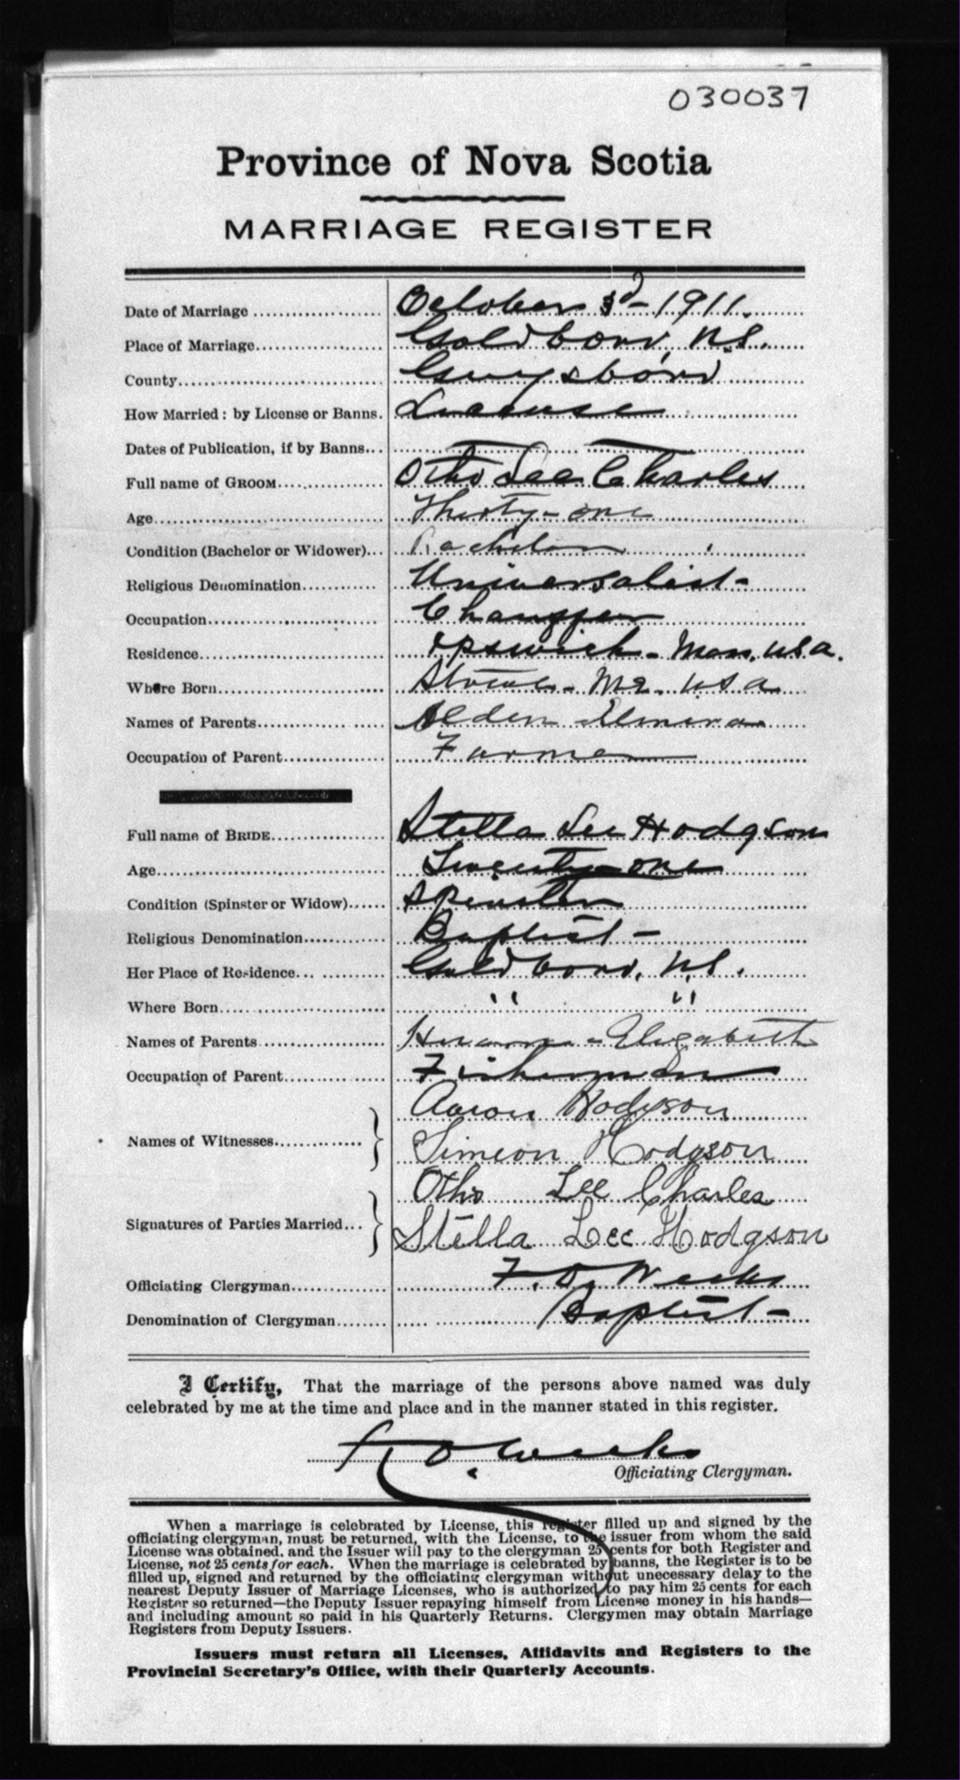 030037
Province of Nova Scotia
MARRIAGE REGISTER
Date of Marriage October 3d - 1911.
Place of Marriage Goldboro, N.S.
County Guysboro
How Married: by License or Banns. License
Dates of Publication, if by Banns
Full name of GROOM Otho Lee Charles
Age Thirty-one
Condition (Bachelor or Widower) Bachelor
Religious Denomination Universalist -
Occupation
Residence Ipswich - Mass. USA.
Where Born Me. USA
Names of Parents Alden Elmira
Occupation of Parent Farmer
Full name of BRIDE Stella Lee Hodgson
Age Twenty-one
Condition (Spinster or Widow) Spinster
Religious Denomination Baptist -
Her Place of Residence Goldboro, N.S.
Where Born " "
Names of Parents - Elizabeth
Occupation of Parent Fisherman
Aaron Hodgson
Names of Witnesses
Simeon Hodgson
Otho Lee Charles
Signatures of Parties Married
Stella Lee Hodgson
Officiating Clergyman F. O. Weeks
Denomination of Clergyman Baptist -
I Certify, That the marriage of the persons above named was duly
celebrated by me at the time and place and in the manner stated in this register.
F. O. Weeks
Officiating Clergyman.
When a marriage is celebrated by License, this register filled up and signed by the
officiating clergyman, must be returned, with the License, to the issuer from whom the said
License was obtained, and the Issuer will pay to the clergyman 25 cents for both Register and
License, not 25 cents for each. When the marriage is celebrated by banns, the Register is to be
filled up, signed and returned by the officiating clergyman without unnecessary delay to the
nearest Deputy Issuer of Marriage Licenses, who is authorized to pay him 25 cents for each
Register so returned—the Deputy Issuer repaying himself from License money in his hands—
and including amount so paid in his Quarterly Returns. Clergymen may obtain Marriage
Registers from Deputy Issuers.
Issuers must return all Licenses, Affidavits and Registers to the
Provincial Secretary's Office, with their Quarterly Accounts.